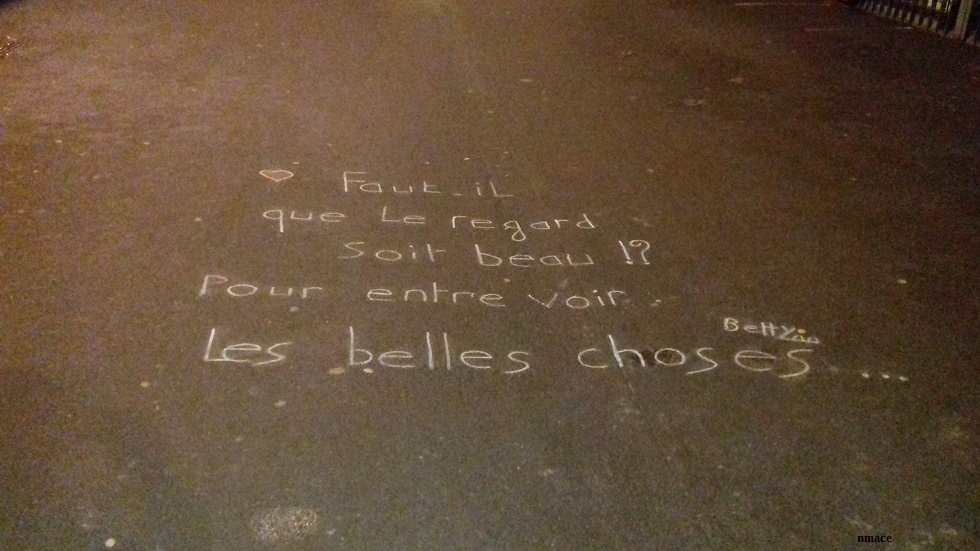 ♥ Faut-il
que Le regard
Soit beau !?
Pour entre voir
Betty
Les belles choses ....
nmace